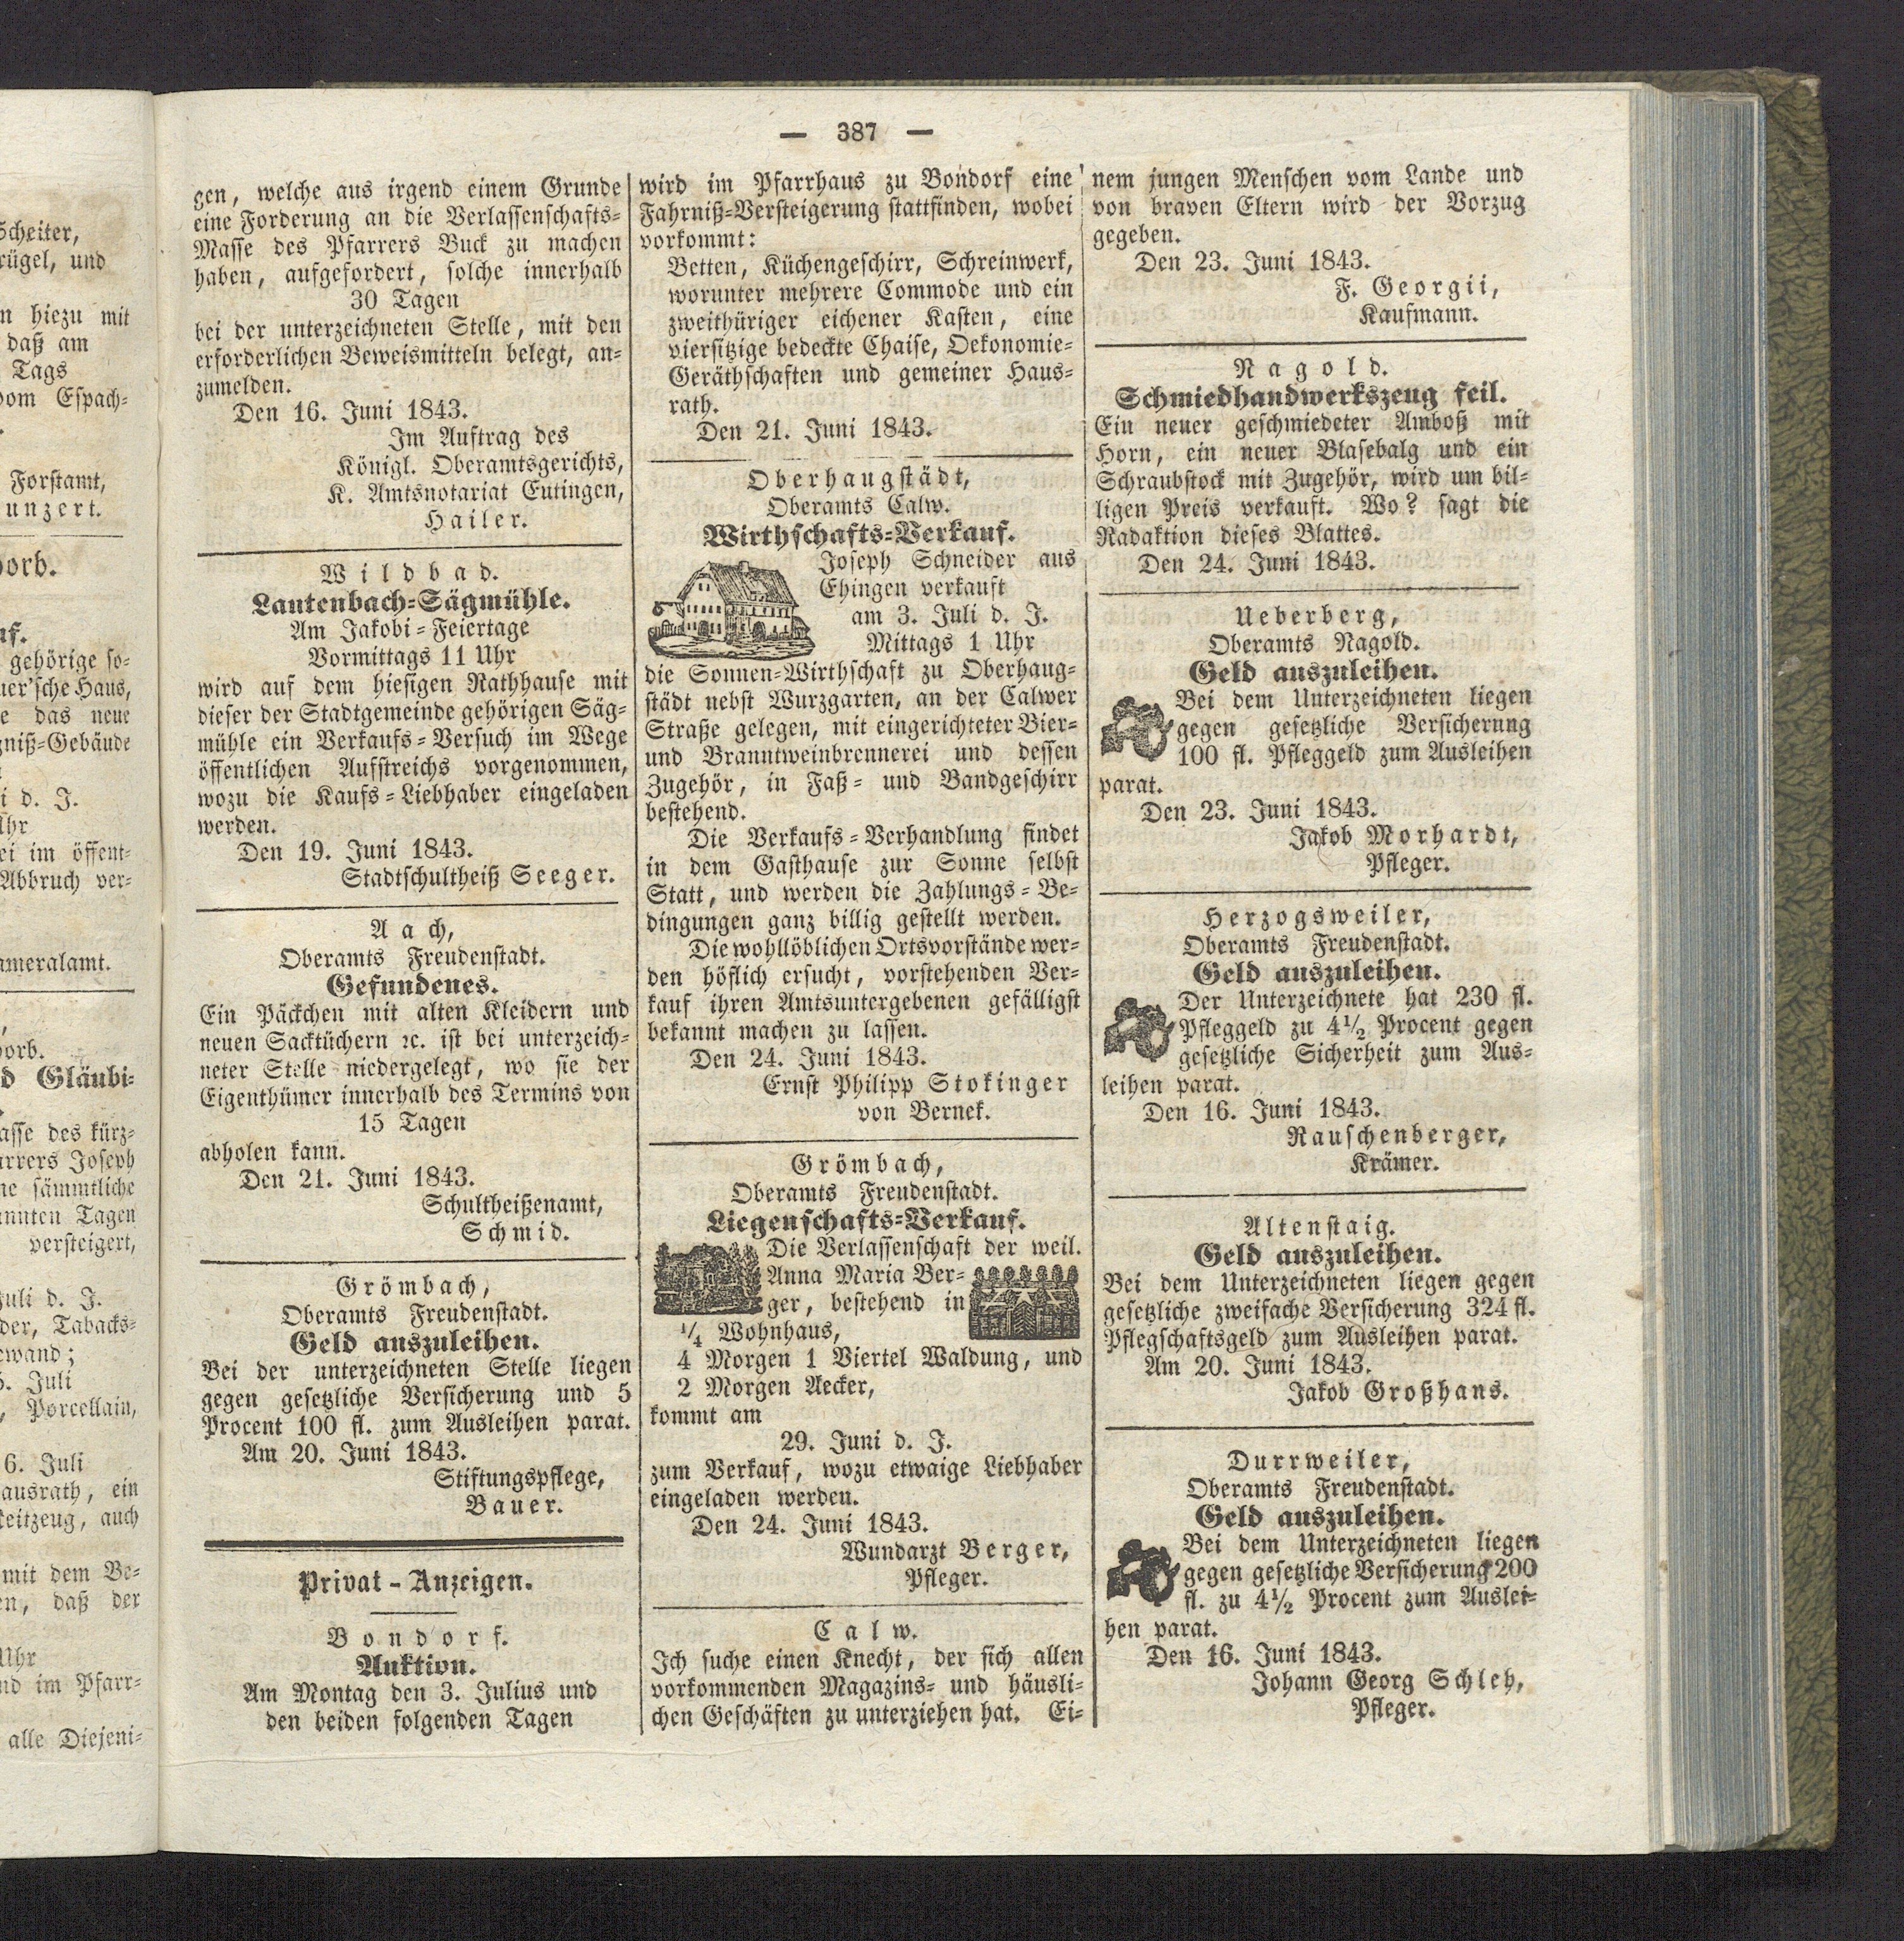 Scheiter,
rügel, und
n hiezu mit
daß am
Tags
vom Espach-
Forstamt,
unzert.
orb.
uf.
gehörige so-
uer'sche Haus,
e das neue
gniß-Gebäude
i d. J.
Uhr
ei im öffent-
Abbruch ver-
ameralamt.
orb.
d Gläubi-
asse des kürz-
arrers Joseph
ne sämmtliche
annten Tagen
versteigert,
Juli d. J.
der, Tabacks-
ewand;
5. Juli
, Porcellain,
6. Juli
ausrath, ein
Reitzeug, auch
mit dem Be-
en, daß der
Uhr
nd im Pfarr-
alle Diejeni-
— 387 —
gen, welche aus irgend einem Grunde
eine Forderung an die Verlassenschafts-
Masse des Pfarrers Buck zu machen
haben, aufgefordert, solche innerhalb
30 Tagen
bei der unterzeichneten Stelle, mit den
erforderlichen Beweismitteln belegt, an-
zumelden.
Den 16. Juni 1843.
Im Auftrag des
Königl. Oberamtsgerichts,
K. Amtsnotariat Eutingen,
Hailer.
Wildbad.
Lautenbach-Sägmühle.
Am Jakobi-Feiertage
Vormittags 11 Uhr
wird auf dem hiesigen Rathhause mit
dieser der Stadtgemeinde gehörigen Säg-
mühle ein Verkaufs-Versuch im Wege
öffentlichen Aufstreichs vorgenommen,
wozu die Kaufs-Liebhaber eingeladen
werden.
Den 19. Juni 1843.
Stadtschultheiß Seeger.
Aach,
Oberamts Freudenstadt.
Gefundenes.
Ein Päckchen mit alten Kleidern und
neuen Sacktüchern ꝛc. ist bei unterzeich-
neter Stelle niedergelegt, wo sie der
Eigenthümer innerhalb des Termins von
15 Tagen
abholen kann.
Den 21. Juni 1843.
Schultheißenamt,
Schmid.
Grömbach,
Oberamts Freudenstadt.
Geld auszuleihen.
Bei der unterzeichneten Stelle liegen
gegen gesetzliche Versicherung und 5
Procent 100 fl. zum Ausleihen parat.
Am 20. Juni 1843.
Stiftungspflege,
Bauer.
Privat-Anzeigen.
Bondorf.
Auktion.
Am Montag den 3. Julius und
den beiden folgenden Tagen
wird im Pfarrhaus zu Bondorf eine
Fahrniß-Versteigerung stattfinden, wobei
vorkommt:
Betten, Küchengeschirr, Schreinwerk,
worunter mehrere Commode und ein
zweithüriger eichener Kasten, eine
viersitzige bedeckte Chaise, Oekonomie-
Geräthschaften und gemeiner Haus-
rath.
Den 21. Juni 1843.
Oberhaugstädt,
Oberamts Calw.
Wirthschafts-Verkauf.
Joseph Schneider aus
Ehingen verkauft
am 3. Juli d. J.
Mittags 1 Uhr
die Sonnen-Wirthschaft zu Oberhaug-
städt nebst Wurzgarten, an der Calwer
Straße gelegen, mit eingerichteter Bier-
und Branntweinbrennerei und dessen
Zugehör, in Faß- und Bandgeschirr
bestehend.
Die Verkaufs-Verhandlung findet
in dem Gasthause zur Sonne selbst
Statt, und werden die Zahlungs-Be-
dingungen ganz billig gestellt werden.
Die wohllöblichen Ortsvorstände wer-
den höflich ersucht, vorstehenden Ver-
kauf ihren Amtsuntergebenen gefälligst
bekannt machen zu lassen.
Den 24. Juni 1843.
Ernst Philipp Stokinger
von Bernek.
Grömbach,
Oberamts Freudenstadt.
Liegenschafts-Verkauf.
Die Verlassenschaft der weil.
Anna Maria Ber-
ger, bestehend in
¼ Wohnhaus,
4 Morgen 1 Viertel Waldung, und
2 Morgen Aecker,
kommt am
29. Juni d. J.
zum Verkauf, wozu etwaige Liebhaber
eingeladen werden.
Den 24. Juni 1843.
Wundarzt Berger,
Pfleger.
Calw.
Ich suche einen Knecht, der sich allen
vorkommenden Magazins- und häusli-
chen Geschäften zu unterziehen hat. Ei-
nem jungen Menschen vom Lande und
von braven Eltern wird der Vorzug
gegeben.
Den 23. Juni 1843.
F. Georgii,
Kaufmann.
Nagold.
Schmiedhandwerkszeug feil.
Ein neuer geschmiedeter Amboß mit
Horn, ein neuer Blasebalg und ein
Schraubstock mit Zugehör, wird um bil-
ligen Preis verkauft. Wo? sagt die
Radaktion dieses Blattes.
Den 24. Juni 1843.
Ueberberg,
Oberamts Nagold.
Geld auszuleihen.
Bei dem Unterzeichneten liegen
gegen gesetzliche Versicherung
100 fl. Pfleggeld zum Ausleihen
parat.
Den 23. Juni 1843.
Jakob Morhardt,
Pfleger.
Herzogsweiler,
Oberamts Freudenstadt.
Geld auszuleihen.
Der Unterzeichnete hat 230 fl.
Pfleggeld zu 4½ Procent gegen
gesetzliche Sicherheit zum Aus-
leihen parat.
Den 16. Juni 1843.
Rauschenberger,
Krämer.
Altenstaig.
Geld auszuleihen.
Bei dem Unterzeichneten liegen gegen
gesetzliche zweifache Versicherung 324 fl.
Pflegschaftsgeld zum Ausleihen parat.
Am 20. Juni 1843.
Jakob Großhans.
Durrweiler,
Oberamts Freudenstadt.
Geld auszuleihen.
Bei dem Unterzeichneten liegen
gegen gesetzliche Versicherung 200
fl. zu 4½ Procent zum Auslei-
hen parat.
Den 16. Juni 1843.
Johann Georg Schleh,
Pfleger.